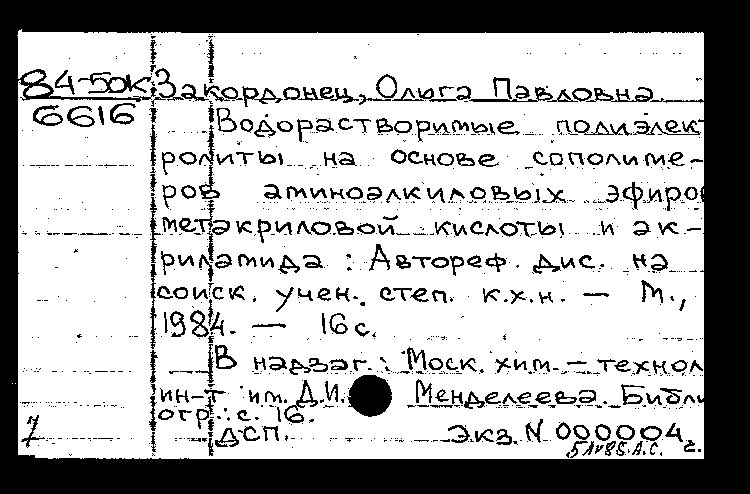 84-50К Закордонец, Ольга Павловна
6616
Водорастворимые полиэлек
ролиты на основе сополиме-
ров аминоалкиловых эфиров
метакриловой кислоты и ак-
риламида : Автореф. дис. на
соиск. учен. степ. к.х.н. — М.,
1984. — 16 с.
В надзаг.: Моск. хим. - технол
ин-т им. Д.И. Менделеева. Библи
огр.: с. 16.
ДСП. Экз. N 000004